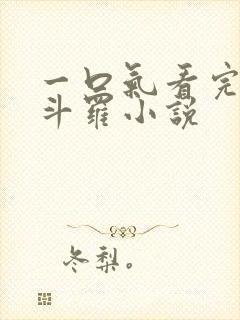 一口氣看完
斗羅小說
冬梨。